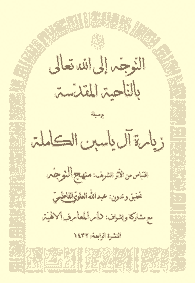 التوجه إلى الله تعالى
بالناحية المقدسة
بوسيلة
زيارة آل ياسين الكاملة
اقتباس من الأثر الشريف: منهج التوجه
تحقيق وتدوين: عبدالله العلوي الفاطمي
مع مشاركة وإشراف: دار المعارف الإلهية
النشرة الرابعة: ١٤٣٢